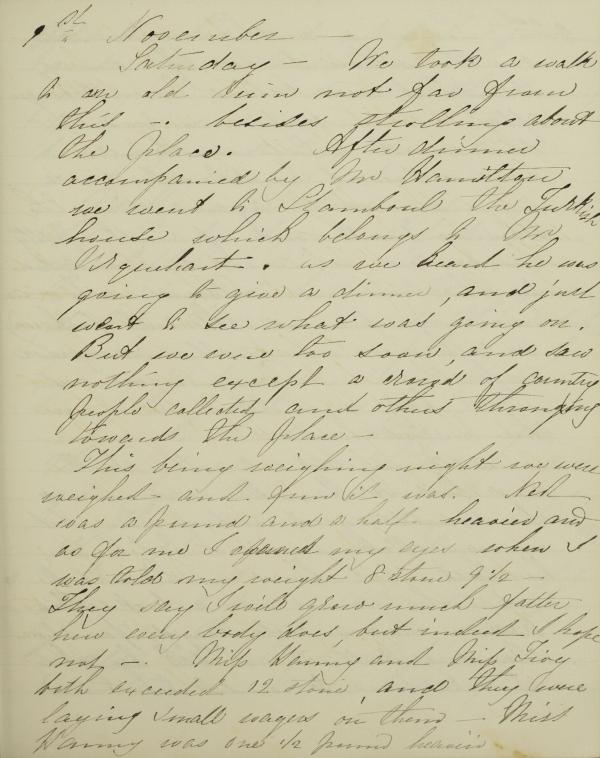 1st November —
Saturday — We took a walk
to an old ruin not far from
this — . besides strolling about
the place. After dinner
accompanied by Mr Hamilton
we went to Stamboul the Turkish
house which belongs to Mr
Urquehart . as we heard he was
going to give a dinner, and just
went to see what was going on.
But we were too soon, and saw
nothing except a crowd of country
people collected and others thronging
towards the place —
This being weighing night we were
weighed and fun it was. Ned
was a pound and a half heavier and
as for me I opened my eyes when I
was told my weight 8 stone 9 1/2 —
They say I will grow much fatter
here every body does, but indeed I hope
not — . Miss Hanny and Miss
both exceeded 12 stone, and they were
laying small wagers on them — Miss
Hanny was one 1/2 pound heavier